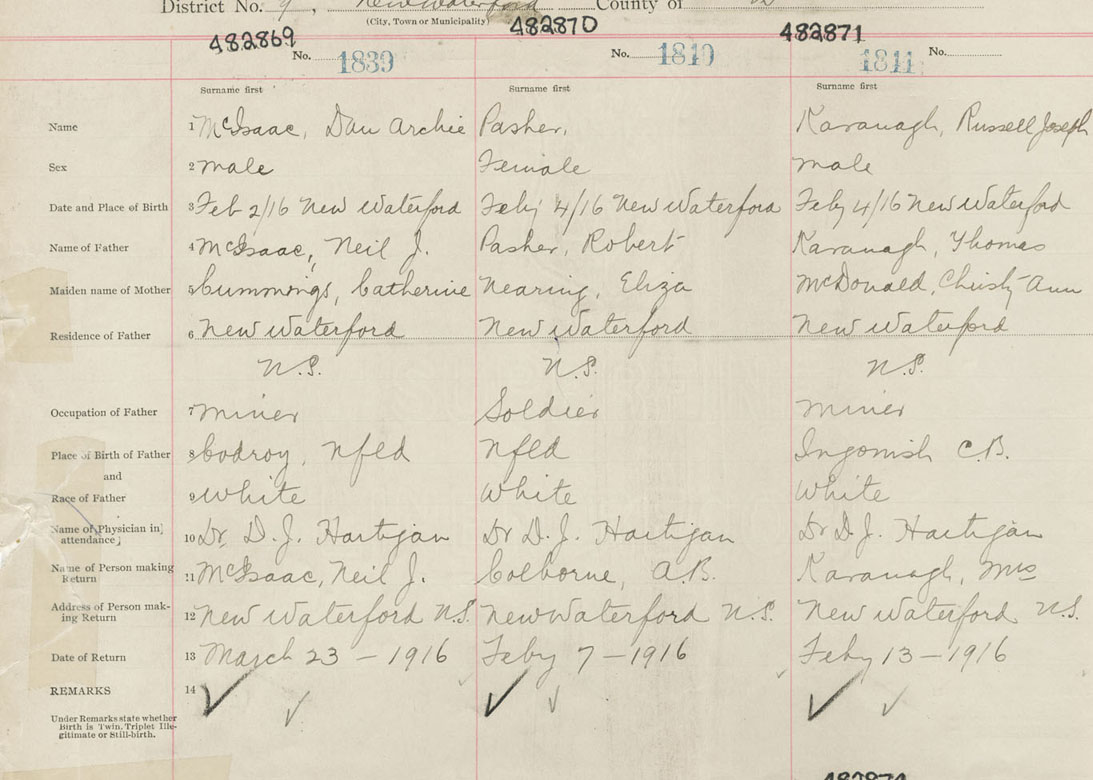 District No. 9, New Waterford County of
(City, Town or Municipality)
482869 482870 482871
No. 1839 No. 1840 No. 1841
Surname first Surname first Surname first
Name 1 McIsaac, Dan Archie Pasher, Kavanagh, Russell Joseph
Sex 2 male Female male
Date and Place of Birth 3 Feb 2/16 New Waterford Feby 4/16 New Waterford Feby 4/16 New Waterford
Name of Father 4 McIsaac, Neil J. Pasher, Robert Kavanagh, Thomas
Maiden name of Mother 5 Cummings, Catherine Nearing, Eliza McDonald, Christy Ann
Residence of Father 6 New Waterford New Waterford New Waterford
N.S. N.S. N.S.
Occupation of Father 7 miner Soldier miner
Place of Birth of Father 8 Codroy, Nfld Nfld Ingonish C.B.
and
Race of Father 9 White White White
Name of Physician in 10 Dr. D.J. Hartigan Dr D.J. Hartigan Dr D.J. Hartigan
attendance
Name of Person making 11 McIsaac, Neil J. Colborne, A.B. Kavanagh, Mrs
Return
Address of Person mak- 12 New Waterford N.S. New Waterford N.S. New Waterford N.S.
ing Return
Date of Return 13 March 23 - 1916 Feby 7 - 1916 Feby 13 - 1916
REMARKS 14
Under Remarks state whether
Birth is Twin, Triplet Ille-
gitimate or Still-birth.